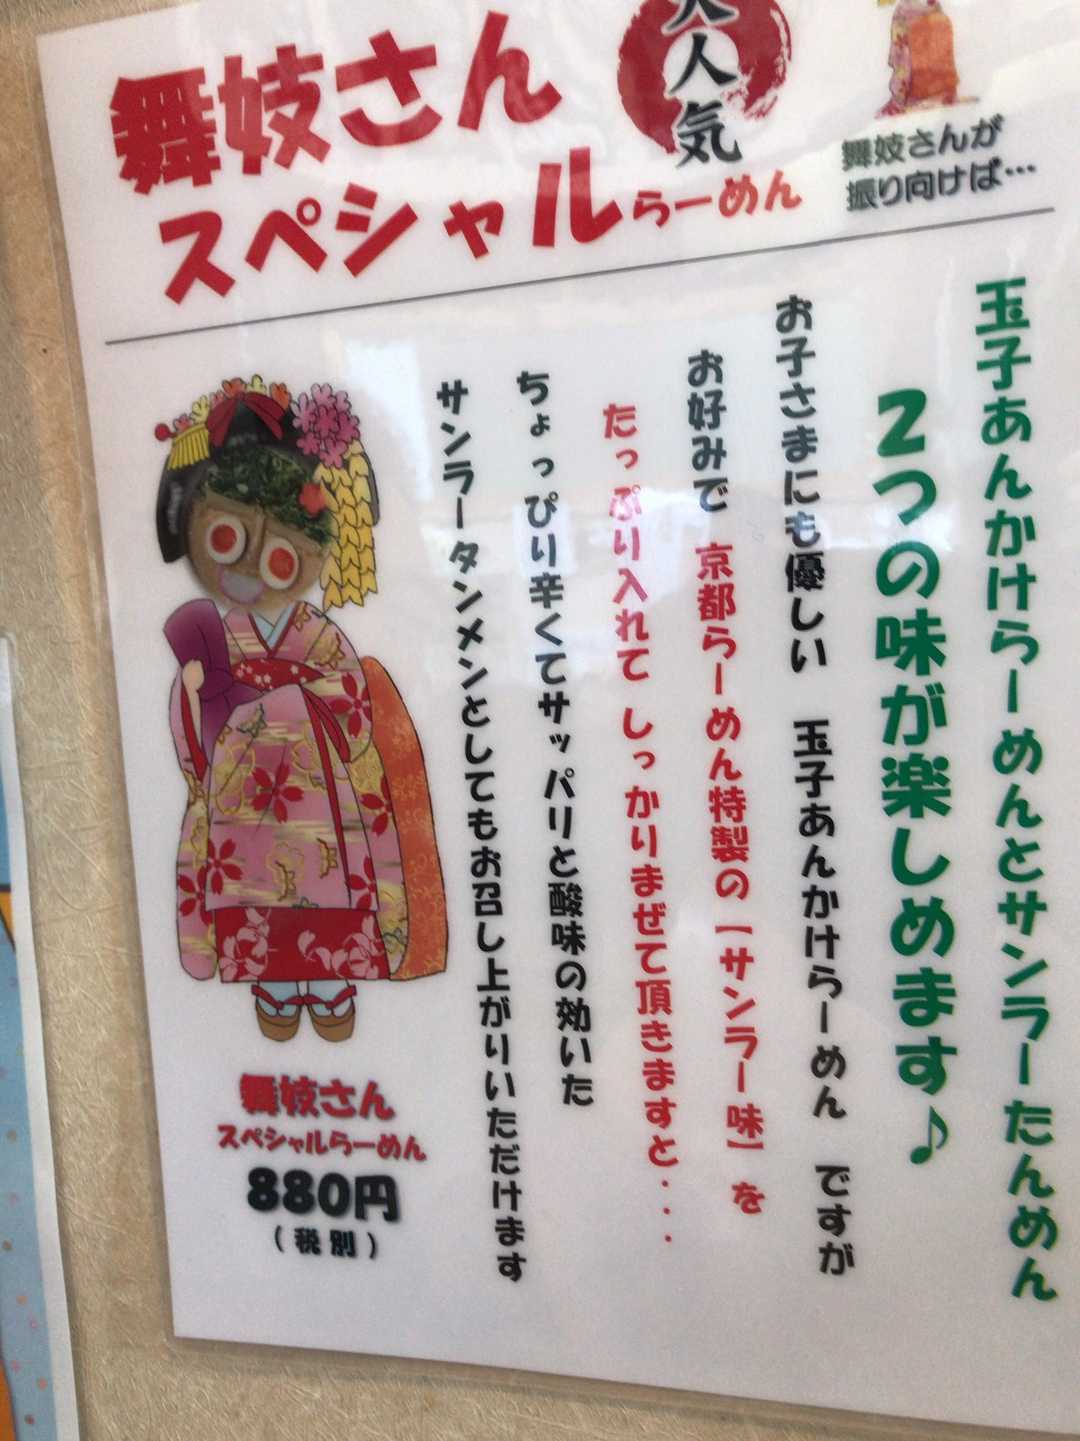 舞妓さん
スペシャルらーめん
大人気
舞妓さんが
振り向けば…
玉子あんかけらーめんとサンラーたんめん
2つの味が楽しめます♪
お子さまにも優しい 玉子あんかけらーめん ですが
お好みで 京都らーめん特製の【サンラー味】を
たっぷり入れて しっかりまぜて頂きますと・・・
ちょっぴり辛くてサッパリと酸味の効いた
サンラータンメンとしてもお召し上がりいただけます
舞妓さん
スペシャルらーめん
880円
(税別)